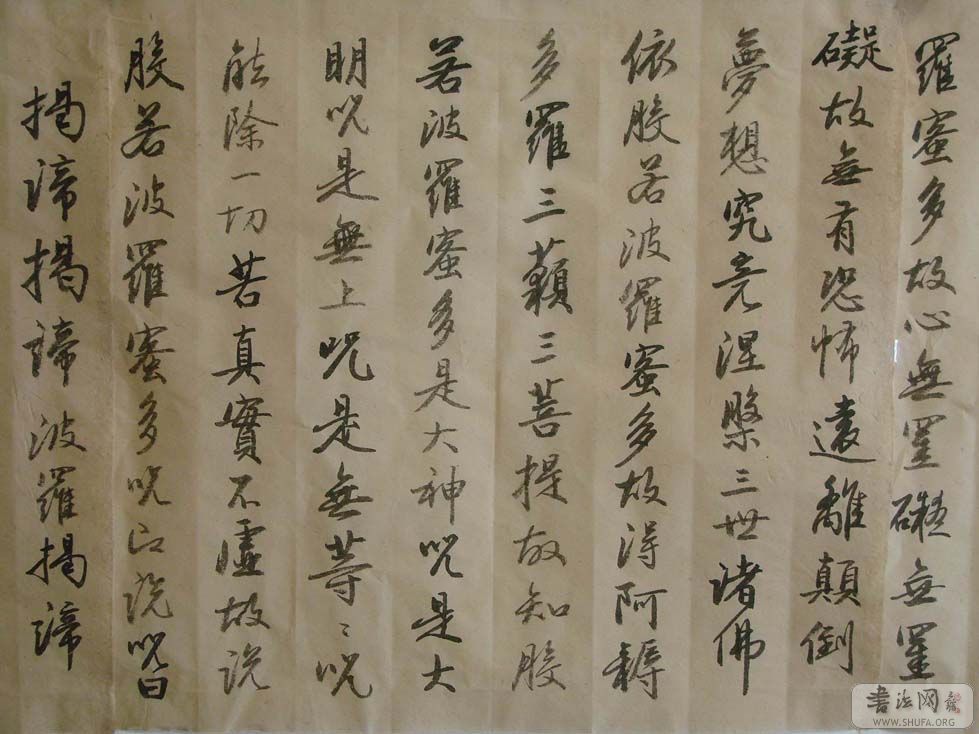 羅蜜多故心無罣礙無罣
礙故無有恐怖遠離顛倒
夢想究竟涅槃三世諸佛
依般若波羅蜜多故得阿耨
多羅三藐三菩提故知般
若波羅蜜多是大神咒是大
明咒是無上咒是無等等咒
能除一切苦真實不虛故說
般若波羅蜜多咒即說咒曰
揭諦揭諦波羅揭諦
書法网
WWW.SHUFA.ORG